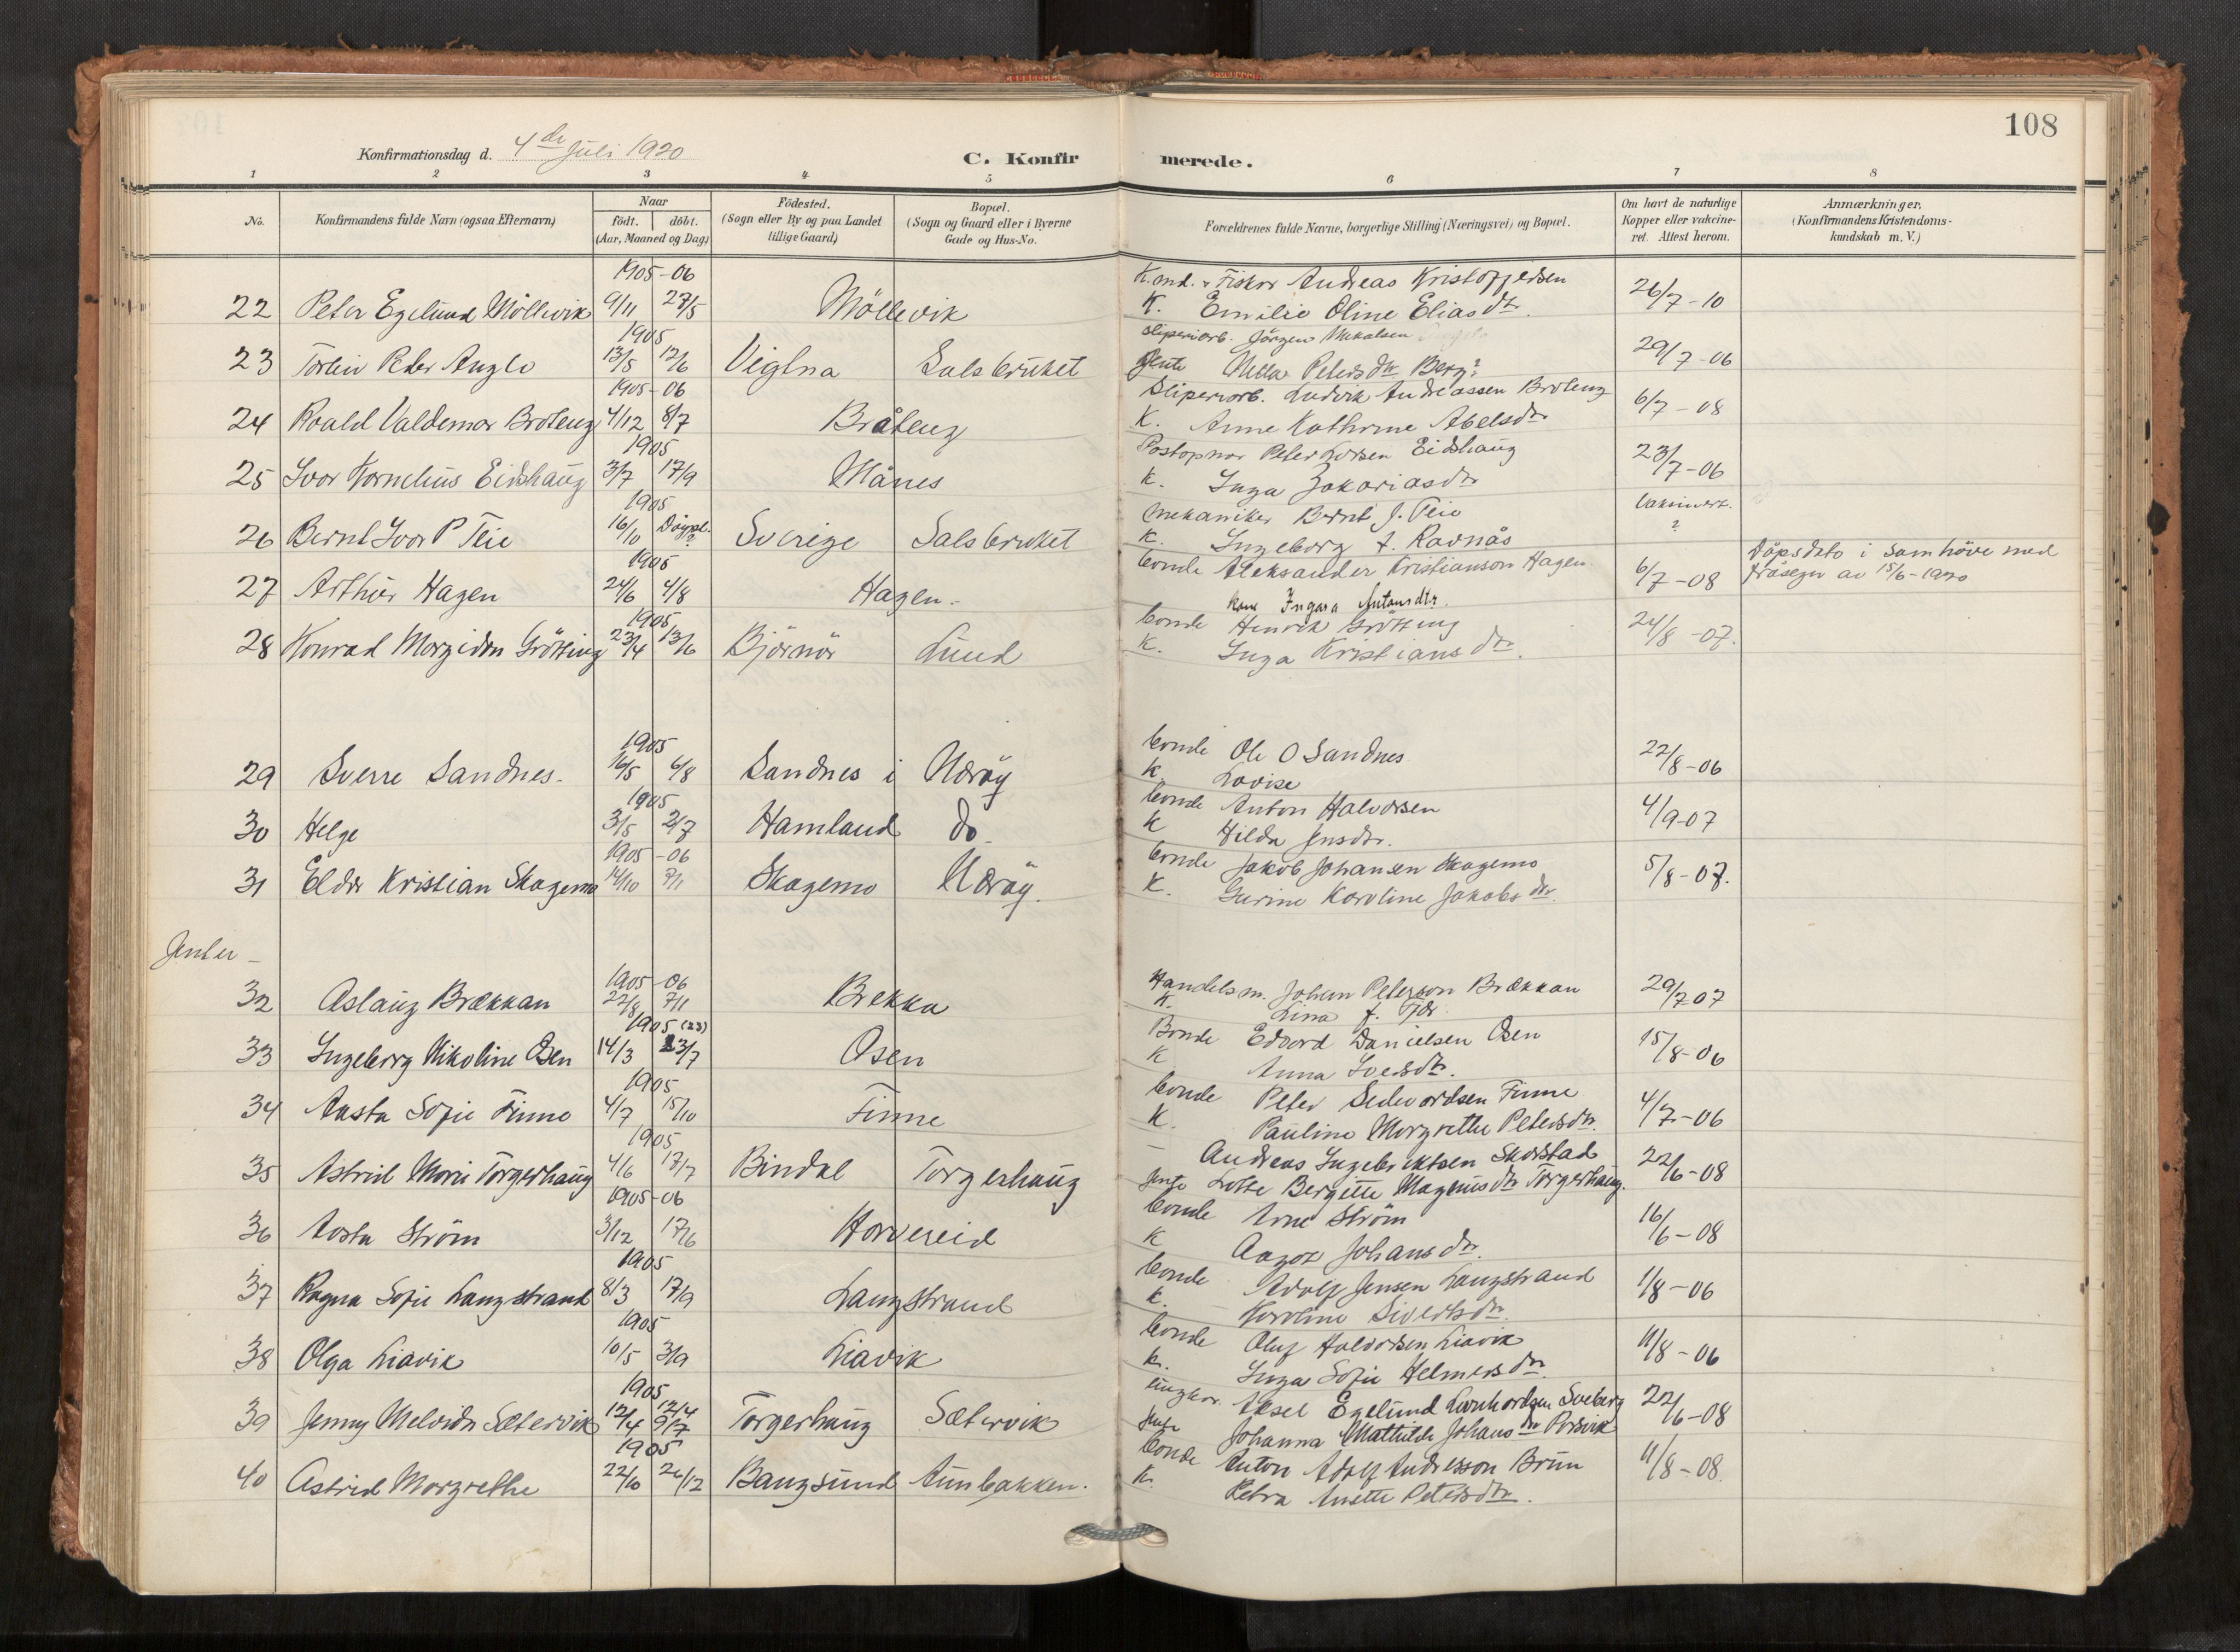 108
Konfirmationsdag d. 4de Juli 1920
C. Konfirmerede.
1 2 3 4 5 6 7 8
No.
Konfirmandens fulde Navn (ogsaa Efternavn)
Naar
födt. döbt.
(Aar, Maaned og Dag)
Födested.
(Sogn eller By og paa Landet
tillige Gaard)
Bopæl.
(Sogn og Gaard eller i Byerne
Gade og Hus-No.
Forældrenes fulde Navne, borgerlige Stilling (Næringsvei) og Bopæl.
Om havt de naturlige
Kopper eller vakcine-
ret. Attest herom.
Anmærkninger.
(Konfirmandens Kristendoms-
kundskab m. V.)
1905-06
22 Peter Egelund Möllevik 9/11 27/5 Möllevik Fisker Andreas Kristoffersen 26/7-10
K. Emilie Oline Eliasdtr.
1905
23 Peter 13/5 12/6 Vigtna Salsbruket Sliperiarb. Jörgen Mikalsen 29/7-06
Jente Petersdtr Berg?
1905-06
24 Roald Valdemar Bråteng 4/12 8/7 Bråteng Sliperiarb. Ludvik Andreassen Bråteng 6/7-08
K. Anne Kathrine Abelsdtr
1905
25 Ivar Kornelius Eidshaug 3/7 17/9 Månes Postopnar Peter Larsen Eidshaug 23/7-06
K. Inga Zakariasdtr
1905
26 Bernt Ivar P Teie 16/10 ? Sverige Salsbruket Mekaniker Bernt J. Teie Vaksinert. ?
K. Ingeborg f. Ravnås
1905
27 Arthur Hagen 24/6 4/8 Hagen. bonde Aleksander Kristianson Hagen 6/7-08 Dåpsdato i samhöve med
kone Ingara Antonsdtr. fråsegn av 15/6-1920
1905
28 Konrad Margidon Grötting 23/4 13/6 Björnör Lund bonde Henrik Grötting 24/8-07.
K. Inga Kristiansdtr.
1905
29 Sverre Sandnes. 16/5 6/8 Sandnes i Næröy bonde Ole O Sandnes 22/8-06
K. Lovise
1905
30 Helge 3/5 2/7 Hamland do bonde Anton Halvorsen 4/9-07
K Hilda Jensdtr.
1905-06
31 Eldor Kristian Skagemo 14/10 7/1 Skagemo Nærøy. bonde Jakob Johansen Skagemo 5/8-07.
K. Gurine Karoline Jakobsdtr.
Jenter -
1905-06
32 Aslaug Brækkan 22/8 7/1 Brekka Handelsm. Johan Peterson Brækkan 29/7 07
K. Lina f.
1905 (23)
33 Ingeborg Nikoline Osen 14/3 23/7 Osen Bonde Edvard Danielsen Osen 15/8-06
K Anna
1905
34 Aasta Sofie Finne 4/7 15/10 Finne bonde Peter Sedvardsen Finne 4/7-06
K. Pauline Margrethe Petersdtr.
1905
35 Astrid Marie Torgerhaug 4/6 17/7 Bindal Torgerhaug — Andreas Ingebriktsen Skorstad 22/6-08
Jente Lotte Bergitte Magnusdtr Torgerhaug.
1905-06
36 Aasta Ström 3/12 17/6 Horvereid bonde Arne Ström 16/6-08
K Aagot Johansdtr.
1905
37 Ragna Sofie Langstrand 8/3 17/9 Langstrand bonde Adolf Jensen Langstrand 1/8-06
K. Karoline Sivertsdtr.
1905
38 Olga Liavik 10/5 3/9 Liavik bonde Oluf Halvorsen Liavik 11/8-06
K. Inga Sofie Helmersdtr.
1905
12/4
39 Jenny Melvida Sætervik 12/4 9/7 Torgerhaug Sætervik ungkar. Aksel Egelund Lornhardsen Soeberg 22/6-08
Jente Johanna Mathilde Johansdtr
1905
40 Astrid Margrethe 22/10 26/12 Bangsund Aunbakken. bonde Anton Adolf Andresson Brun 11/8-08.
K. Petra Anette Petersdtr.